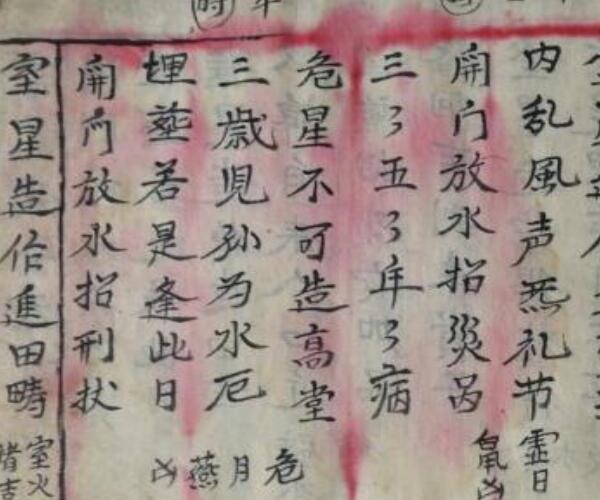 時
内乱風声無礼节
虚日鼠凶
開门放水招災咼
三〻五〻年〻病
危星不可造高堂
三歳児孙为水厄
埋塟若是逢此日
開门放水招刑状
危月燕凶
室星造作進田疇
室火猪吉